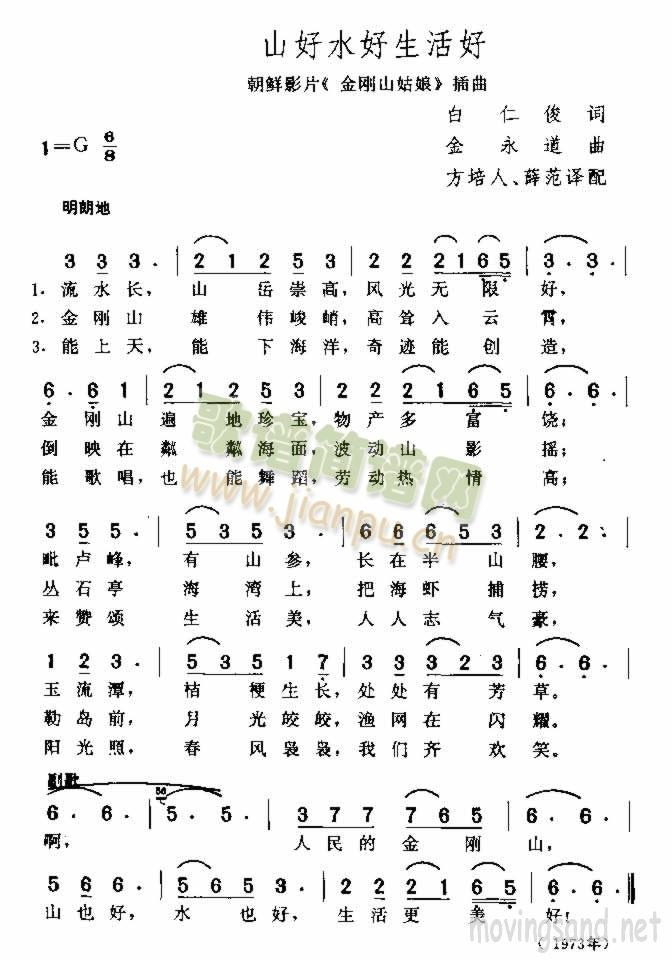 山好水好生活好
朝鲜影片《金刚山姑娘》插曲
白仁俊词
1=G 6/8
金永道曲
方培人、薛范译配
明朗地
3 3 3. | 2 1 2 5 3 | 2 2 2 1 6 5 | 3. 3. |
1. 流水长，山岳崇高，风光无限好，
2. 金刚山雄伟峻峭，高耸入云霄，
3. 能上天，能下海洋，奇迹能创造，
6. 6 1 | 2 1 2 5 3 | 2 2 2 1 6 5 | 6. 6. |
金刚山遍地珍宝，物产多富饶；
倒映在粼粼海面，波动山影摇；
能歌唱，也能舞蹈，劳动热情高；
3 5 5. | 5 3 5 3. | 6 6 6 5 3 | 2. 2. |
毗卢峰，有山参，长在半山腰，
丛石亭海湾上，把海虾捕捞，
来赞颂生活美，人人志气豪，
1 2 3. | 5 3 5 1 7 | 3 3 3 2 3 | 6. 6. |
玉流潭，桔梗生长，处处有芳草。
勒岛前，月光皎皎，渔网在闪耀。
阳光照，春风袅袅，我们齐欢笑。
副歌
56
6. 6. | 5. 5. | 3 7 7 7 6 5 | 6. 6. |
啊，人民的金刚山，
5 6 6. | 5 6 5 3. | 2 2 2 1 6 5 | 6. 6. |
山也好，水也好，生活更美好！
（1973年）
歌谱简谱网
www.jianpu.cn
movingsand.net